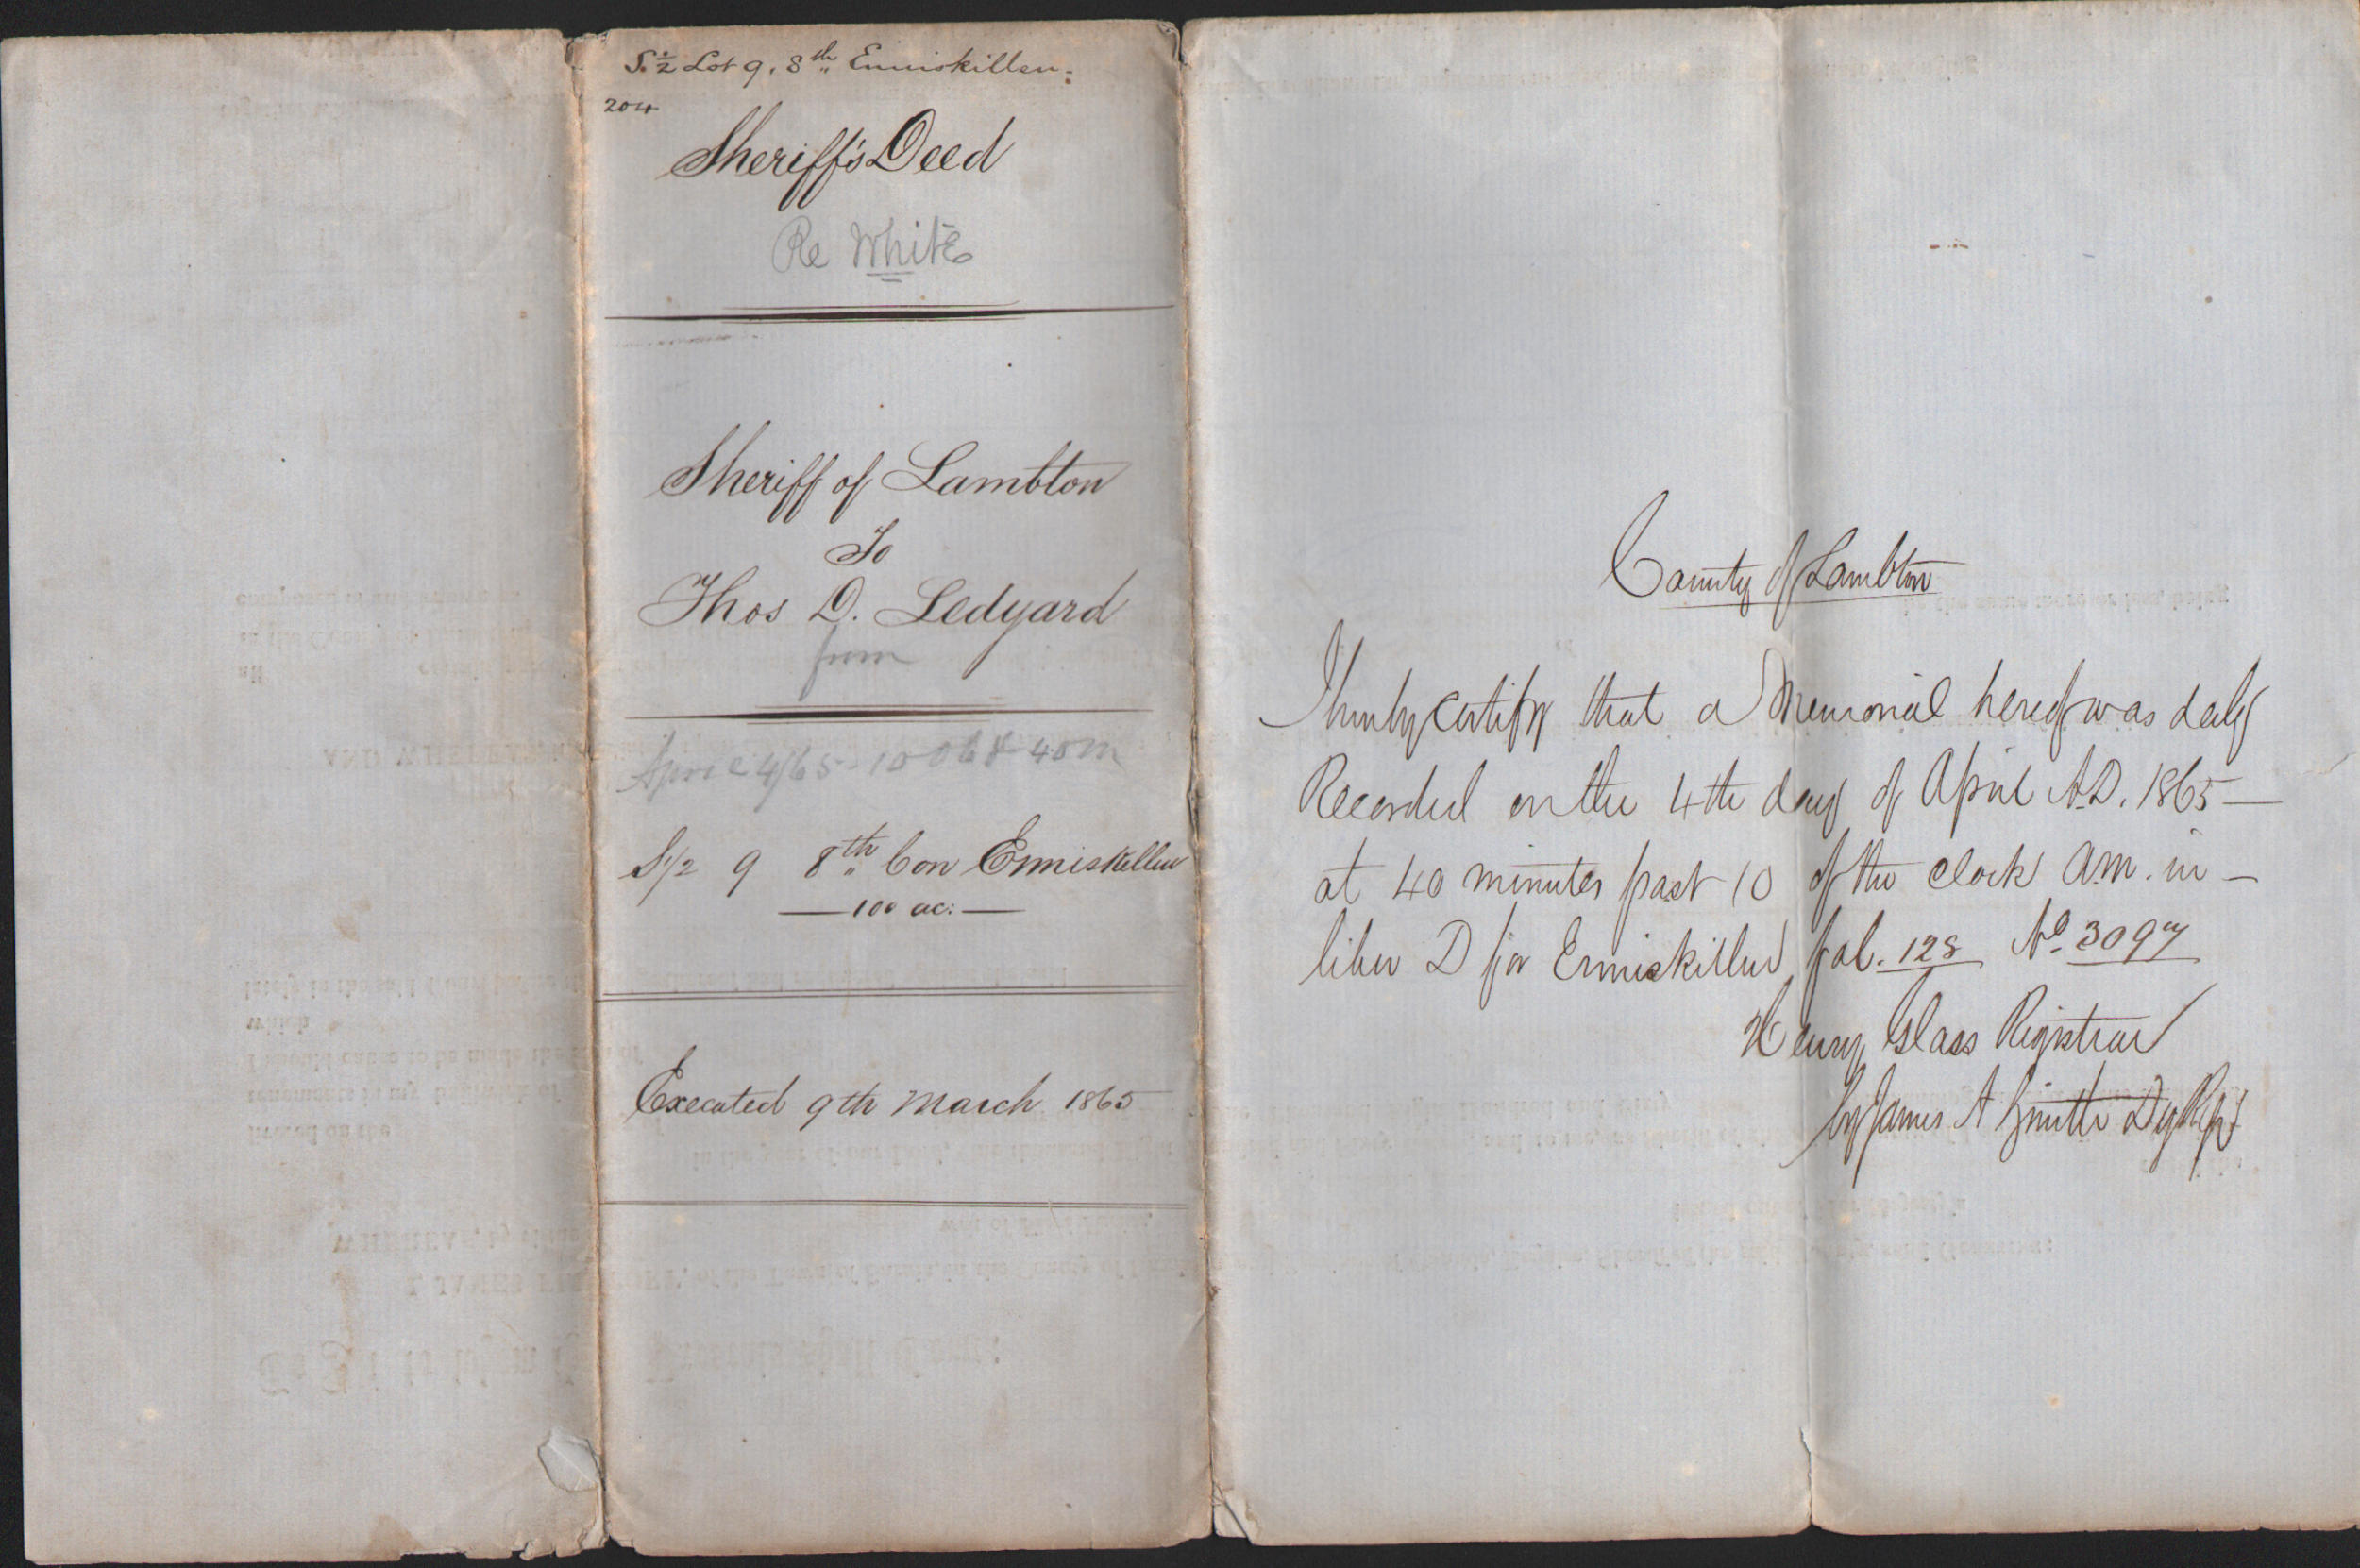 S. ½ Lot 9. 8th Enniskillen.
204
Sheriff's Deed
Re White
Sheriff of Lambton
To
Thos D. Ledyard
from
April 4/65 - 10 40m
S ½ 9 8th Con Enniskillen
100 ac.
Executed 9th March 1865
County of Lambton
I hereby certify that a Memorial hereof was duly
Recorded on the 4th day of April A.D. 1865
at 40 minutes past 10 of the clock a.m. in
liber D for Enniskillen fol. 128 No 3097
Henry Glass Registrar
by James A Smith Dy Regr